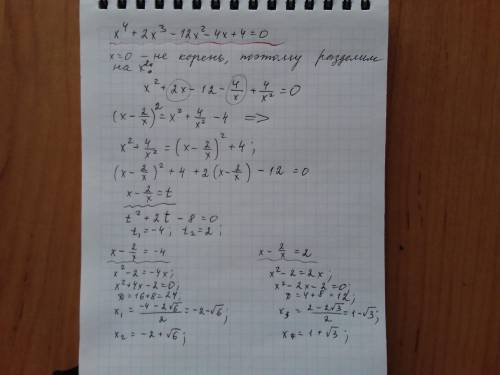 x⁴ + 2x³ - 12x² - 4x + 4 = 0
x=0 - не корень, поэтому разделим
на x²:
x² + 2x - 12 - 4/x + 4/x² = 0
(x - 2/x)² = x² + 4/x² - 4 =>
x² + 4/x² = (x - 2/x)² + 4;
(x - 2/x)² + 4 + 2(x - 2/x) - 12 = 0
x - 2/x = t
t² + 2t - 8 = 0
t₁ = -4; t₂ = 2;
x - 2/x = -4
x² - 2 = -4x;
x² + 4x - 2 = 0;
D = 16 + 8 = 24;
x₁ = (-4 - 2√6)/2 = -2 - √6;
x₂ = -2 + √6;
x - 2/x = 2
x² - 2 = 2x;
x² - 2x - 2 = 0;
D = 4 + 8 = 12;
x₃ = (2 - 2√3)/2 = 1 - √3;
x₄ = 1 + √3;